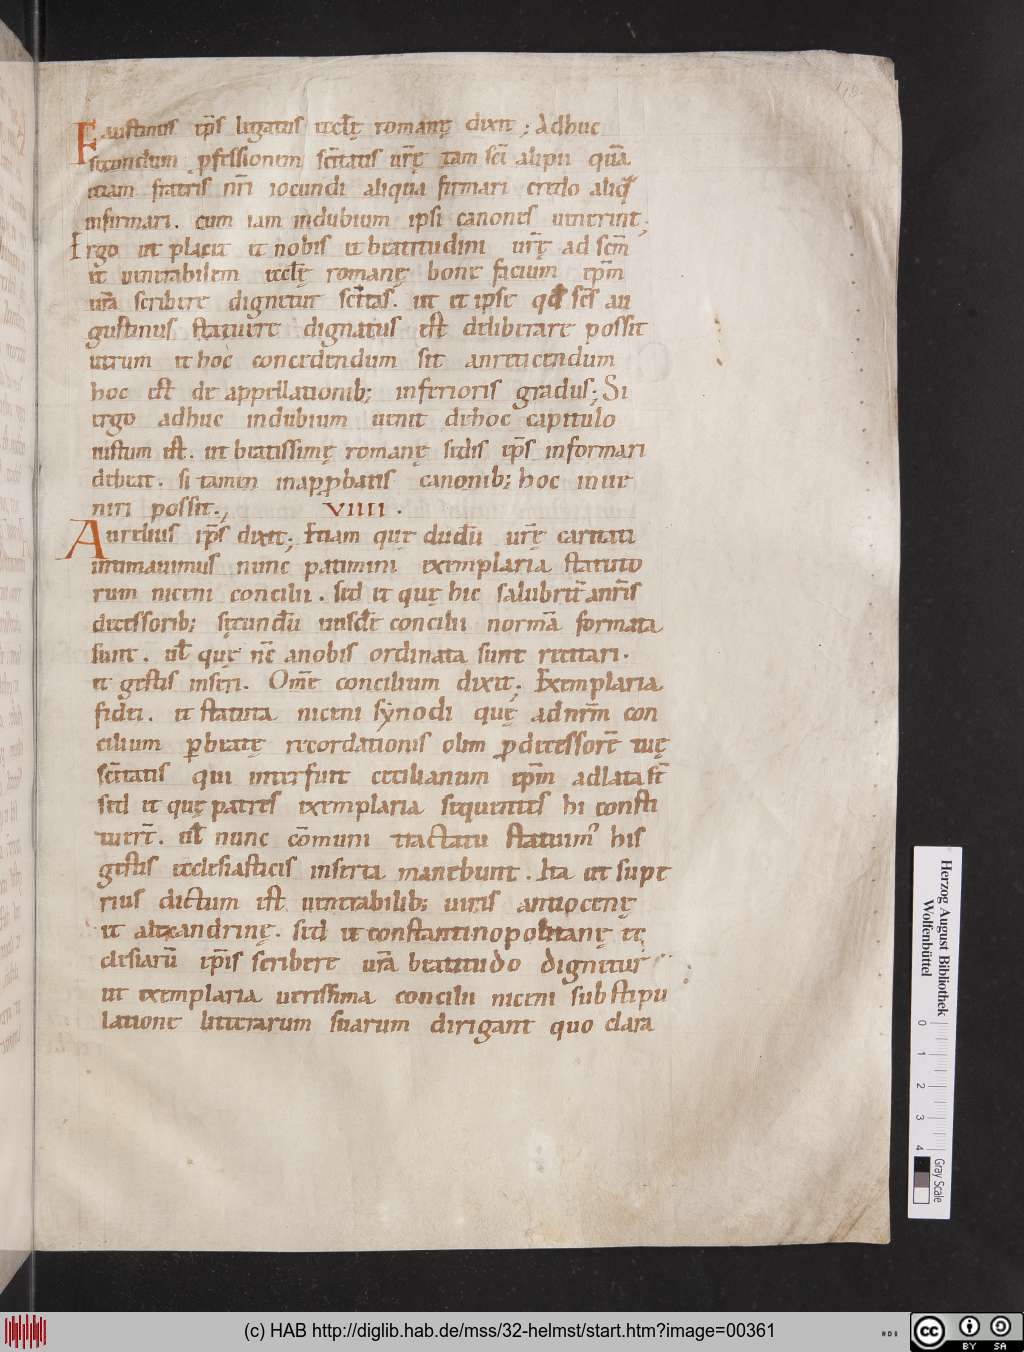 178.
Faustinus ep̄s legatus eccl̄ę romanę dixit ; Adhuc
secundum ꝓfessionem sc̄itatis ur̄ę tam sc̄i alipii quā
etiam fratris nr̄i iocundi aliqua firmari credo aliq̄
infirmari. cum iam indubium ipsi canones uenerint;
Ergo ut placet et nobis et beatitudini ur̄ę ad sc̄m
et uenerabilem eccl̄ę romanę bone facium ep̄m
ur̄a scribere dignetur sc̄itas. ut et ipse qđ sc̄s au
gustinus statuere dignatus est deliberare possit
utrum et hoc concedendum sit anreticendum
hoc est de appellationib; inferioris gradus; Si
ergo adhuc indubium uenit dehoc capitulo
iustum est. ut beatissimę romanę sedis ep̄s informari
debeat. si tamen inapꝓbatis canonib; hoc inue
niri possit.,
VIIII .
Aurelius ep̄s dixit; Etiam quę dudū ur̄ę caritati
intimauimus nunc patimini exemplaria statuto
rum niceni concilii . sed et quę hic salubrit̄ anr̄is
decessorib; secundū eiusdē concilii normā formata
sunt . uł quę nc̄ anobis ordinata sunt recitari.
et gestis inseri. Om̄e concilium dixit; Exemplaria
fidei. et statuta niceni synodi quę adnr̄m con
cilium ꝑbeatę recordationis olim ꝓdecessorē tuę
sc̄itatis qui interfuit cecilianum ep̄m adlata st̄
sed et quę patres exemplaria sequentes hi consti
tuert̄. uł nunc cōmuni tractatu statuim᾿ his
gestis ecclesiasticis inserta manebunt . Ita ut supe
rius dictum est uenerabilib; uiris antiocenę
et alexandrinę. sed et constantinopolitanę ec
clesiarū ep̄is scribere ur̄a beatitudo dignetur
ut exemplaria uerissima concilii niceni sub stipu
latione litterarum suarum dirigant quo clara
Herzog August Bibliothek
Wolfenbüttel
0 1 2 3 4
Gray Scale
(c) HAB http://diglib.hab.de/mss/32-helmst/start.htm?image=00361
cc BY SA